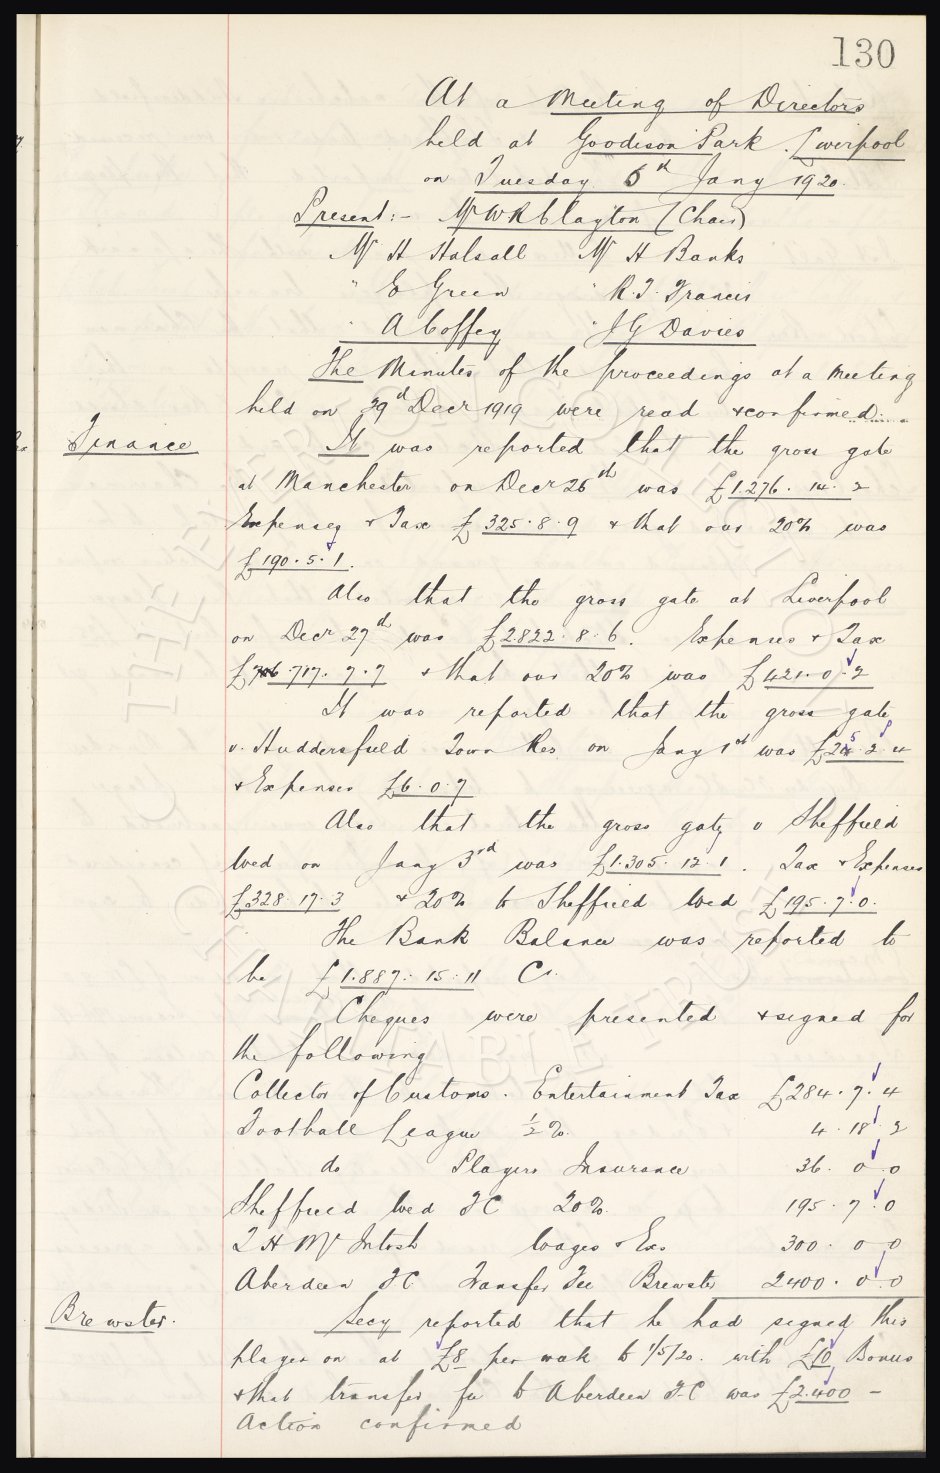 130
At a Meeting of Directors
held at Goodison Park. Liverpool
on Tuesday 6th Jany 1920.
Present:- Mr W R Clayton (Chair)
Mr H Halsall Mr H Banks
" E Green " R. T. Francis
" A Coffey " J G Davies
The Minutes of the proceedings at a meeting
held on 29d Decr 1919 were read & confirmed.
Finance
It was reported that the gross gate
at Manchester on Decr 26th was £1.276. 14. 2
Expenses & Tax £325. 8. 9 & that our 20% was
£190. 5. 1.
Also that the gross gate at Liverpool
on Decr 27d was £2822. 8. 6. Expenses & Tax
£706 717. 7. 7 & that our 20% was £421. 0. 2
It was reported that the gross gate
v. Huddersfield Town Res on Jany 1st was £25. 2. 4
& Expenses £6. 0. 7
Also that the gross gate v Sheffield
Wed on Jany 3rd was £1.305. 12. 1. Tax & Expenses
£328. 17. 3 & 20% to Sheffield Wed £195. 7. 0.
The Bank Balance was reported to
be £1.887. 15. 11 Cr.
Cheques were presented & signed for
the following
Collector of Customs. Entertainment Tax £284. 7. 4
Football League ½%. 4. 18. 2
do Players Insurance 36. 0. 0
Sheffield Wed F C 20%. 195. 7. 0
T H McIntosh Wages & Exs 300. 0. 0
Aberdeen F C Transfer Fee Brewster 2400. 0. 0
Brewster.
Secy reported that he had signed this
player on at £8 per week to 1/5/20. with £10 Bonus
& that transfer fee to Aberdeen F.C was £2.400 -
Action confirmed
THE EVERTON COLLECTION
CHARITABLE TRUST